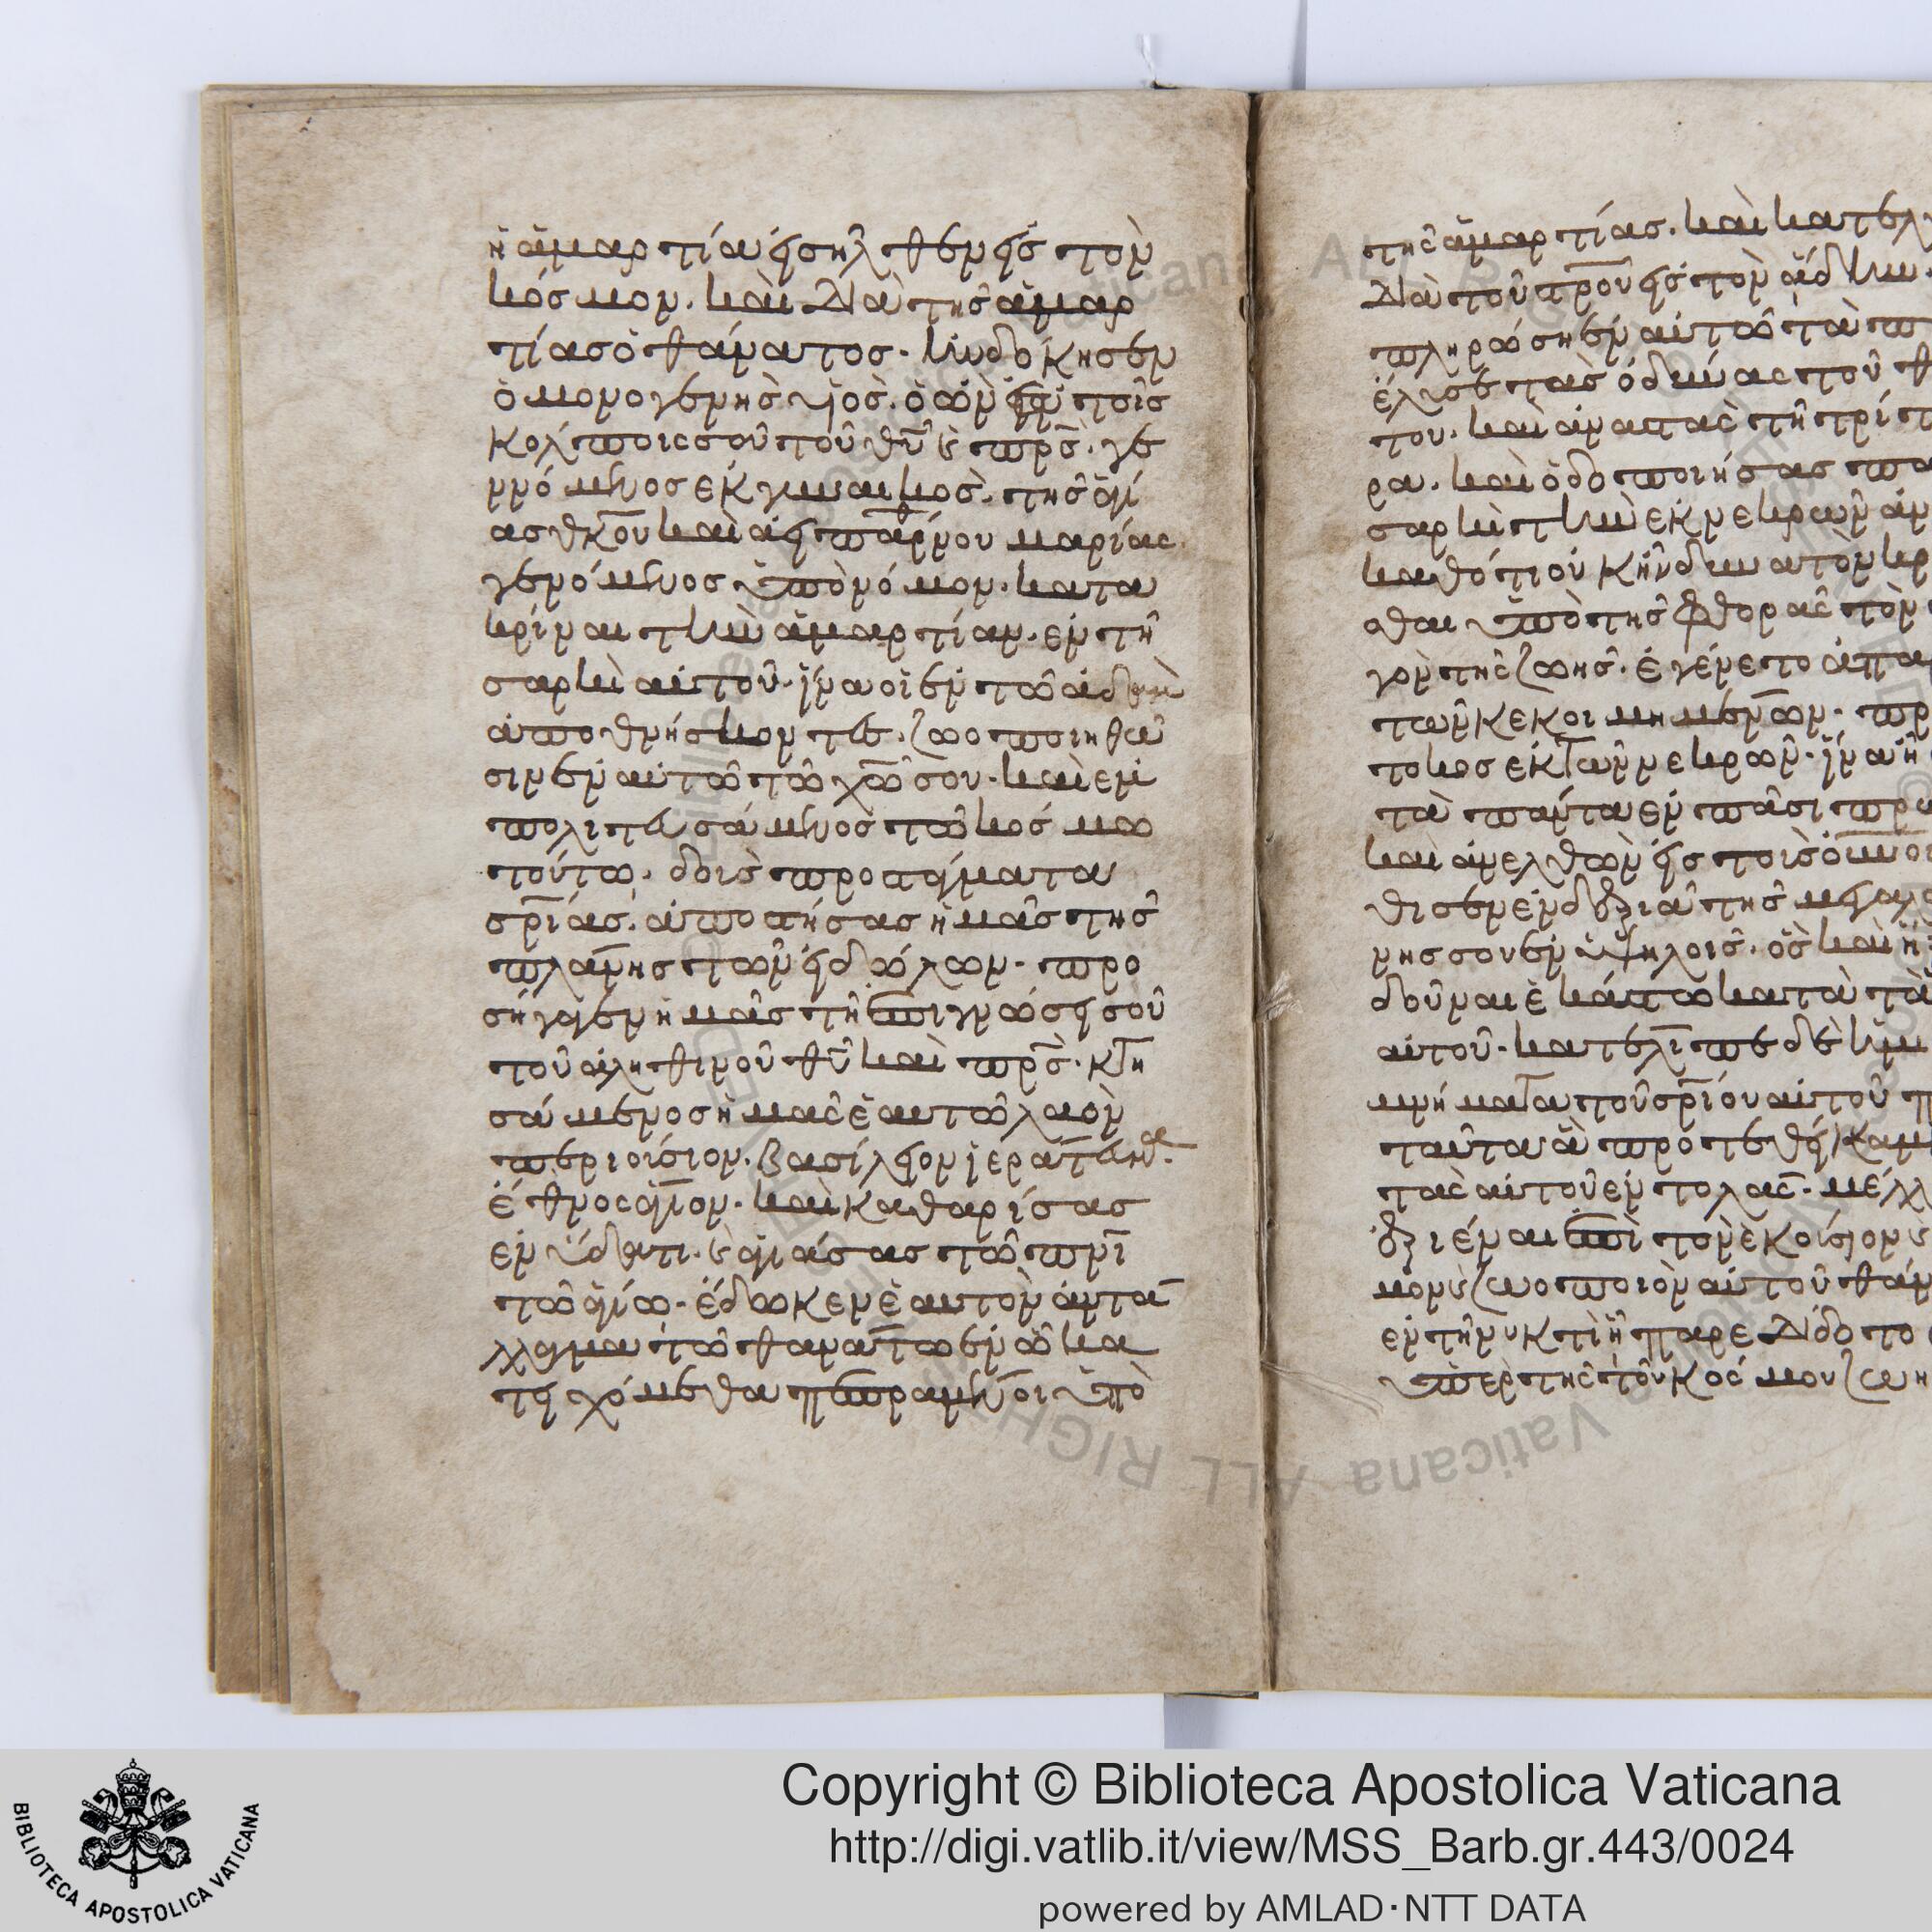 ἡ ἁμαρτία εἰσῆλθεν εἰς τὸν
κόσμον. καὶ διὰ τῆς ἁμαρ
τίας ὁ θάνατος. ηὐδόκησεν
ὁ μονογενής σου υἱὸς. ὁ ὢν ἐν τοῖς
κόλποις σοῦ τοῦ θυ καὶ πρς. γε
νόμενος ἐκ γυναικὸς. τῆς ἁγί
ας θκου καὶ ἀειπαρθένου μαρίας.
γενόμενος ὑπὸ νόμον. κατα
κρίναι τὴν ἁμαρτίαν. ἐν τῆ
σαρκὶ αὐτοῦ. ἵνα οἱ ἐν τῶ ἀδὰμ
ἀποθνήσκοντες. ζωοποιηθῶ
σιν ἐν αὐτῶ τῶ χω σου. καὶ ἐμ
πολιτευσάμενος τῶ κόσμω
τούτω. δοὺς προστάγματα
σρίας. ἀποστήσας ἡμᾶς τῆς
πλάνης τῶν εἰδώλων. προ
σήγαγεν ἡμᾶς τῆ ἐπιγνώσει σοῦ
τοῦ ἀληθινοῦ θυ καὶ πρς. κτη
σάμενος ἡμᾶς ἑαυτῶ λαὸν
περιούσιον. βασίλειον ἱεράτευμα.
ἔθνος ἅγιον. καὶ καθαρίσας
ἐν ὕδατι. καὶ ἁγιάσας τῶ πνι
τῶ ἁγίω. ἔδωκεν ἑαυτὸν ἀντά
λλαγμα τῶ θανάτω ἐν ὧ κα
τειχόμεθα πεπραμένοι ὑπὸ
τῆς ἁμαρτίας. καὶ κατελ
διὰ τοῦ στρου εἰς τὸν ἅδην.
πληρώση ἐν αὐτῶ τὰ π
ἔλυσε τὰς ὀδύνας τοῦ θ
του. καὶ ἀναστὰς τῆ τρίτ
ρα. καὶ ὁδοποιήσας πα
σαρκὶ τὴν ἐκ νεκρῶν ἀν
καθότι οὐκ ἦν δυνατὸν κρ
σθαι ὑπὸ τῆς φθορᾶς τὸν
γὸν τῆς ζωῆς. ἐγένετο ἀπαρ
τῶν κεκοιμημένων. πρ
τοκος ἐκ τῶν νεκρῶν. ἵνα ἦ
τὰ πάντα ἐν πᾶσι πρω
καὶ ἀνελθὼν εἰς τοὺς οὐνου
θισεν ἐν δεξιᾶ τῆς μεγαλω
νης σου ἐν ὑψηλοῖς. ὃς καὶ ἥ
δοῦναι ἑκάστω κατὰ τὰ
αὐτοῦ. κατέλιπε δὲ ἡμ
μνήματα τοῦ σρίου αὐτοῦ π
ταῦτα ἃ προτεθείκαμ
τὰς αὐτοῦ ἐντολὰς. μέλλ
ἐξιέναι ἐπὶ τὸν ἑκούσιον καὶ
μον καὶ ζωοποιὸν αὐτοῦ θάν
ἐν τῆ νυκτὶ ἧ παρεδίδοτο
ὑπὲρ τῆς τοῦ κόσμου ζωῆ
Copyright © Biblioteca Apostolica Vaticana
http://digi.vatlib.it/view/MSS_Barb.gr.443/0024
powered by AMLAD·NTT DATA
BIBLIOTECA APOSTOLICA VATICANA